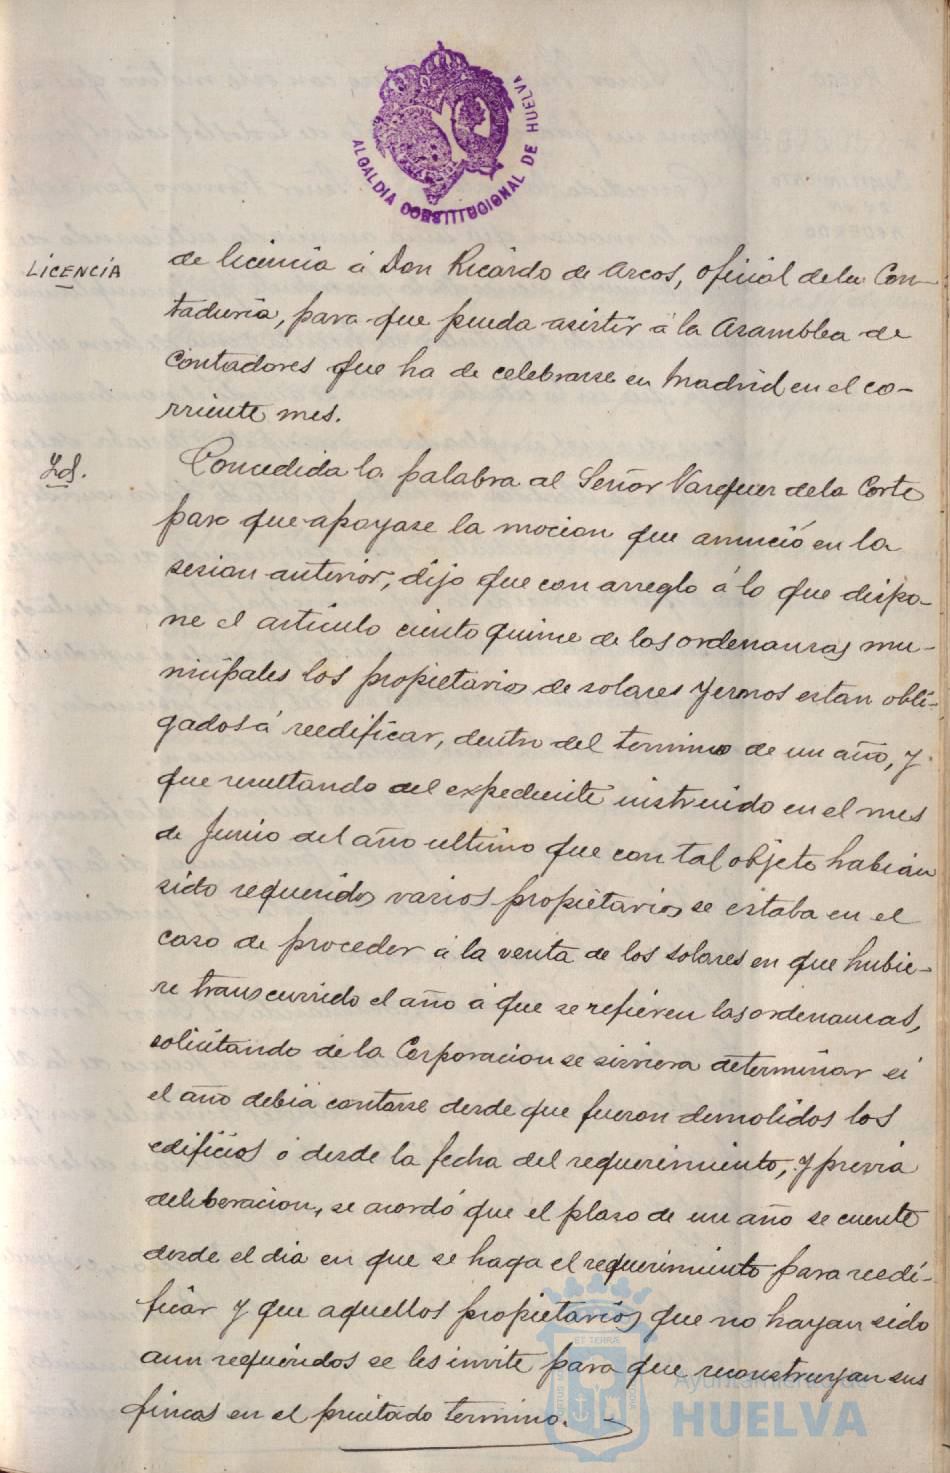 ALCALDIA CONSTITUCIONAL DE HUELVA
LICENCIA
de licencia á Don Ricardo de Arcos, oficial de la Con-
taduria, para que pueda asistir á la Asamblea de
Contadores que ha de celebrarse en Madrid en el co-
rriente mes.
Yd.
Concedida la palabra al Señor Vazquez de la Corte
para que apoyase la mocion que anunció en la
sesion anterior, dijo que con arreglo á lo que dispo-
ne el articulo ciento quince de las ordenanzas mu-
nicipales los propietarios de solares yermos estan obli-
gados á reedificar, dentro del termino de un año, y
que resultando del expediente instruido en el mes
de Junio del año ultimo que con tal objeto habian
sido requeridos varios propietarios se estaba en el
caso de proceder á la venta de los solares en que hubie-
re transcurrido el año á que se refieren las ordenanzas,
solicitando de la Corporacion se sirviera determinar si
el año debia contarse desde que fueron demolidos los
edificios ó desde la fecha del requerimiento, y previa
deliberacion, se acordó que el plazo de un año se cuente
desde el dia en que se haga el requerimiento para reedi-
ficar y que aquellos propietarios que no hayan sido
aun requeridos se les invite para que reconstruyan sus
fincas en el precitado termino.
Ayuntamiento de
HUELVA